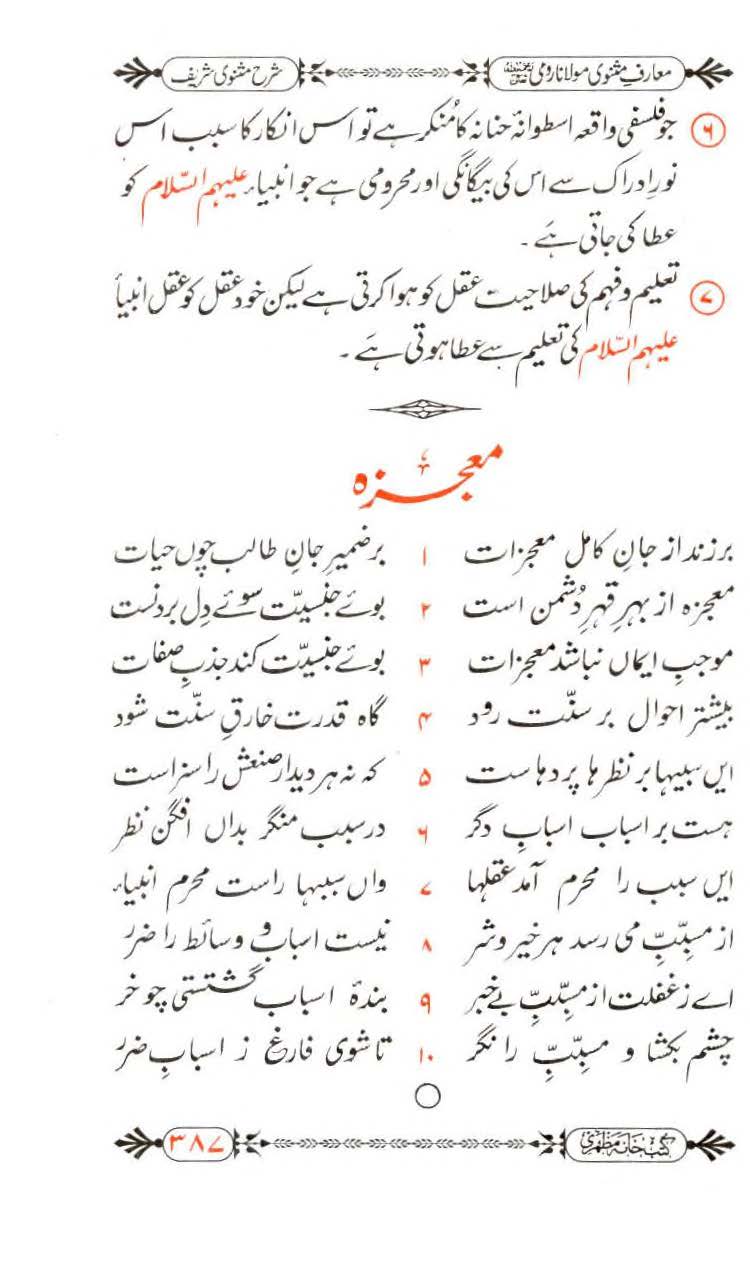 معارفِ مثنوی مولانا رومی رحمۃ اللہ علیہ
شرح مثنوی شریف
۶ جو فلسفی واقعہ اسطوانۂ حنانہ کا مُنکر ہے تو اس انکار کا سبب اس
نورِ ادراک سے اس کی بیگانگی اور محرومی ہے جو انبیاء علیہم السّلام کو
عطا کی جاتی ہَے ۔
۷ تعلیم و فہم کی صلاحیت عقل کو ہوا کرتی ہے لیکن خود عقل کو عقل انبیأ
علیہم السّلام کی تعلیم سے عطا ہوتی ہَے ۔
معجزہ
برزند از جانِ کامل معجزات ۱ بر ضمیرِ جانِ طالب چوں حیات
معجزہ از بہرِ قہرِ دُشمن است ۲ بوئے جنسیّت سوئے دِل بردنست
موجبِ ایماں نباشد معجزات ۳ بوئے جنسیّت کند جذبِ صفات
بیشتر احوال بر سنّت رود ۴ گاہ قدرت خارقِ سنّت شود
ایں سببہا بر نظرہا پردہاست ۵ کہ نہ ہر دیدار صنعش را سزاست
ہست بر اسباب اسبابِ دگر ۶ در سبب منگر بداں افگن نظر
ایں سبب را محرم آمد عقلہا ۷ واں سببہا راست محرم انبیاء
از مسبِّبِ می رسد ہر خیر و شر ۸ نیست اسباب و وسائط را ضرر
اے ز غفلت از مسبِّبِ بے خبر ۹ بندۂ اسباب گشتستی چو خر
چشم بکشا و مسبِّبِ را نگر ۱۰ تا شوی فارغ ز اسبابِ ضرر
کتب خانہ مظہری
۳۸۷